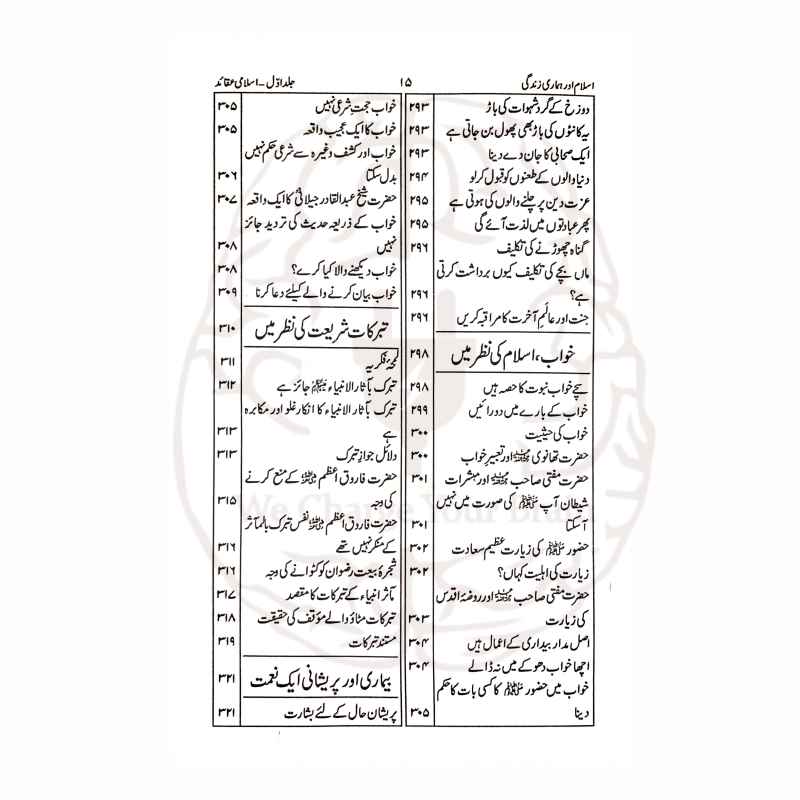 اسلام اور ہماری زندگی
۱۵
جلد اوّل - اسلامی عقائد
دوزخ کے گرد شہوات کی باڑ ۲۹۳
یہ کانٹوں کی باڑ بھی پھول بن جاتی ہے ۲۹۳
ایک صحابی کا جان دے دینا ۲۹۳
دنیا والوں کے طعنوں کو قبول کرلو ۲۹۴
عزت دین پر چلنے والوں کی ہوتی ہے ۲۹۵
پھر عبادتوں میں لذت آئے گی ۲۹۵
گناہ چھوڑنے کی تکلیف ۲۹۶
ماں بچے کی تکلیف کیوں برداشت کرتی
ہے؟ ۲۹۶
جنت اور عالَمِ آخرت کا مراقبہ کریں ۲۹۶
خواب، اسلام کی نظر میں ۲۹۸
سچے خواب نبوت کا حصہ ہیں ۲۹۸
خواب کے بارے میں دو رائیں ۲۹۹
خواب کی حیثیت ۳۰۰
حضرت تھانوی رحمہ اللہ اور تعبیرِ خواب ۳۰۰
حضرت مفتی صاحب رحمہ اللہ اور مبشرات ۳۰۱
شیطان آپ ﷺ کی صورت میں نہیں
آسکتا ۳۰۱
حضور ﷺ کی زیارت عظیم سعادت ۳۰۲
زیارت کی اہلیت کہاں؟ ۳۰۲
حضرت مفتی صاحب رحمہ اللہ اور روضۂ اقدس
کی زیارت ۳۰۳
اصل مدار بیداری کے اعمال ہیں ۳۰۴
اچھا خواب دھوکے میں نہ ڈالے ۳۰۴
خواب میں حضور ﷺ کا کسی بات کا حکم
دینا ۳۰۵
خواب حجتِ شرعی نہیں ۳۰۵
خواب کا ایک عجیب واقعہ ۳۰۵
خواب اور کشف وغیرہ سے شرعی حکم نہیں
بدل سکتا ۳۰۶
حضرت شیخ عبدالقادر جیلانیؒ کا ایک واقعہ ۳۰۷
خواب کے ذریعہ حدیث کی تردید جائز
نہیں ۳۰۸
خواب دیکھنے والا کیا کرے؟ ۳۰۸
خواب بیان کرنے والے کیلئے دعا کرنا ۳۰۹
تبرکات شریعت کی نظر میں ۳۱۰
لمحۂ فکریہ ۳۱۱
تبرک بآثار الانبیاء علیہم السلام جائز ہے ۳۱۲
تبرک بآثار الانبیاء کا انکار غلو اور مکابرہ
ہے ۳۱۳
دلائلِ جوازِ تبرک ۳۱۳
حضرت فاروق اعظم رضی اللہ عنہ کے منع کرنے
کی وجہ ۳۱۵
حضرت فاروق اعظم رضی اللہ عنہ نفس تبرک بالمآثر
کے منکر نہیں تھے ۳۱۶
شجرۂ بیعت رضوان کو کٹوانے کی وجہ ۳۱۶
مآثر انبیاء کے تبرکات کا مقصد ۳۱۷
تبرکات مٹاؤ والے مؤقف کی حقیقت ۳۱۸
مستند تبرکات ۳۱۹
بیماری اور پریشانی ایک نعمت ۳۲۱
پریشان حال کے لئے بشارت ۳۲۱